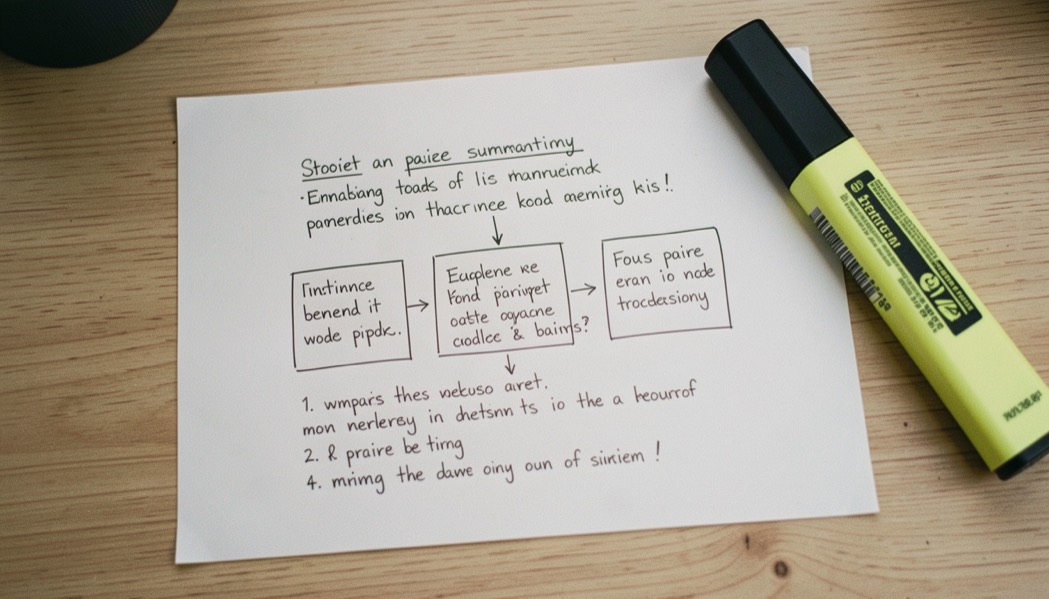 Stooiet an paiee summantimy
·Ennabiang toads of lis mannueimdk
pamerdies ion thacrinee kood aemirig kis!
Tinstinnce
benend it
wode pipdk.
Euaplene ke
Kond pariupet
oatte cayacne
ciodlce & bairrs?
Fous paire
eran io node
trocdessiony
1. wmpars thes nekuso airet.
mon nerlersy in dhetsnn ts io the a heourrof
2. & praire be timg
4. mrimg the dawe oiny oun of siniem !